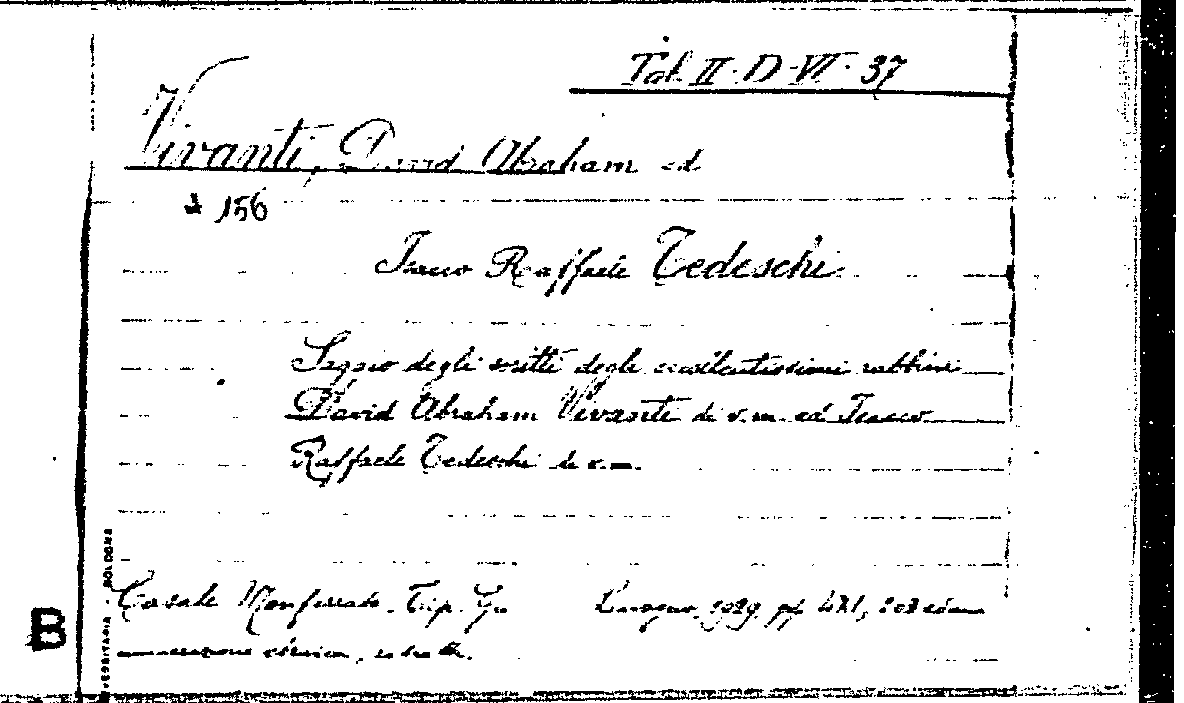 Tal. II-D-VI-37
Vivanti, David Abraham ed
156
Isacco Raffaele Tedeschi
Saggio degli scritti degli eccellentissimi rabbini
David Abraham Vivanti di v.m. ed Isacco
Raffaele Tedeschi di v.m.
Casale Monferrato. Tip. 1929, pp.
numerazione ebraica,
B
BOLOGNA